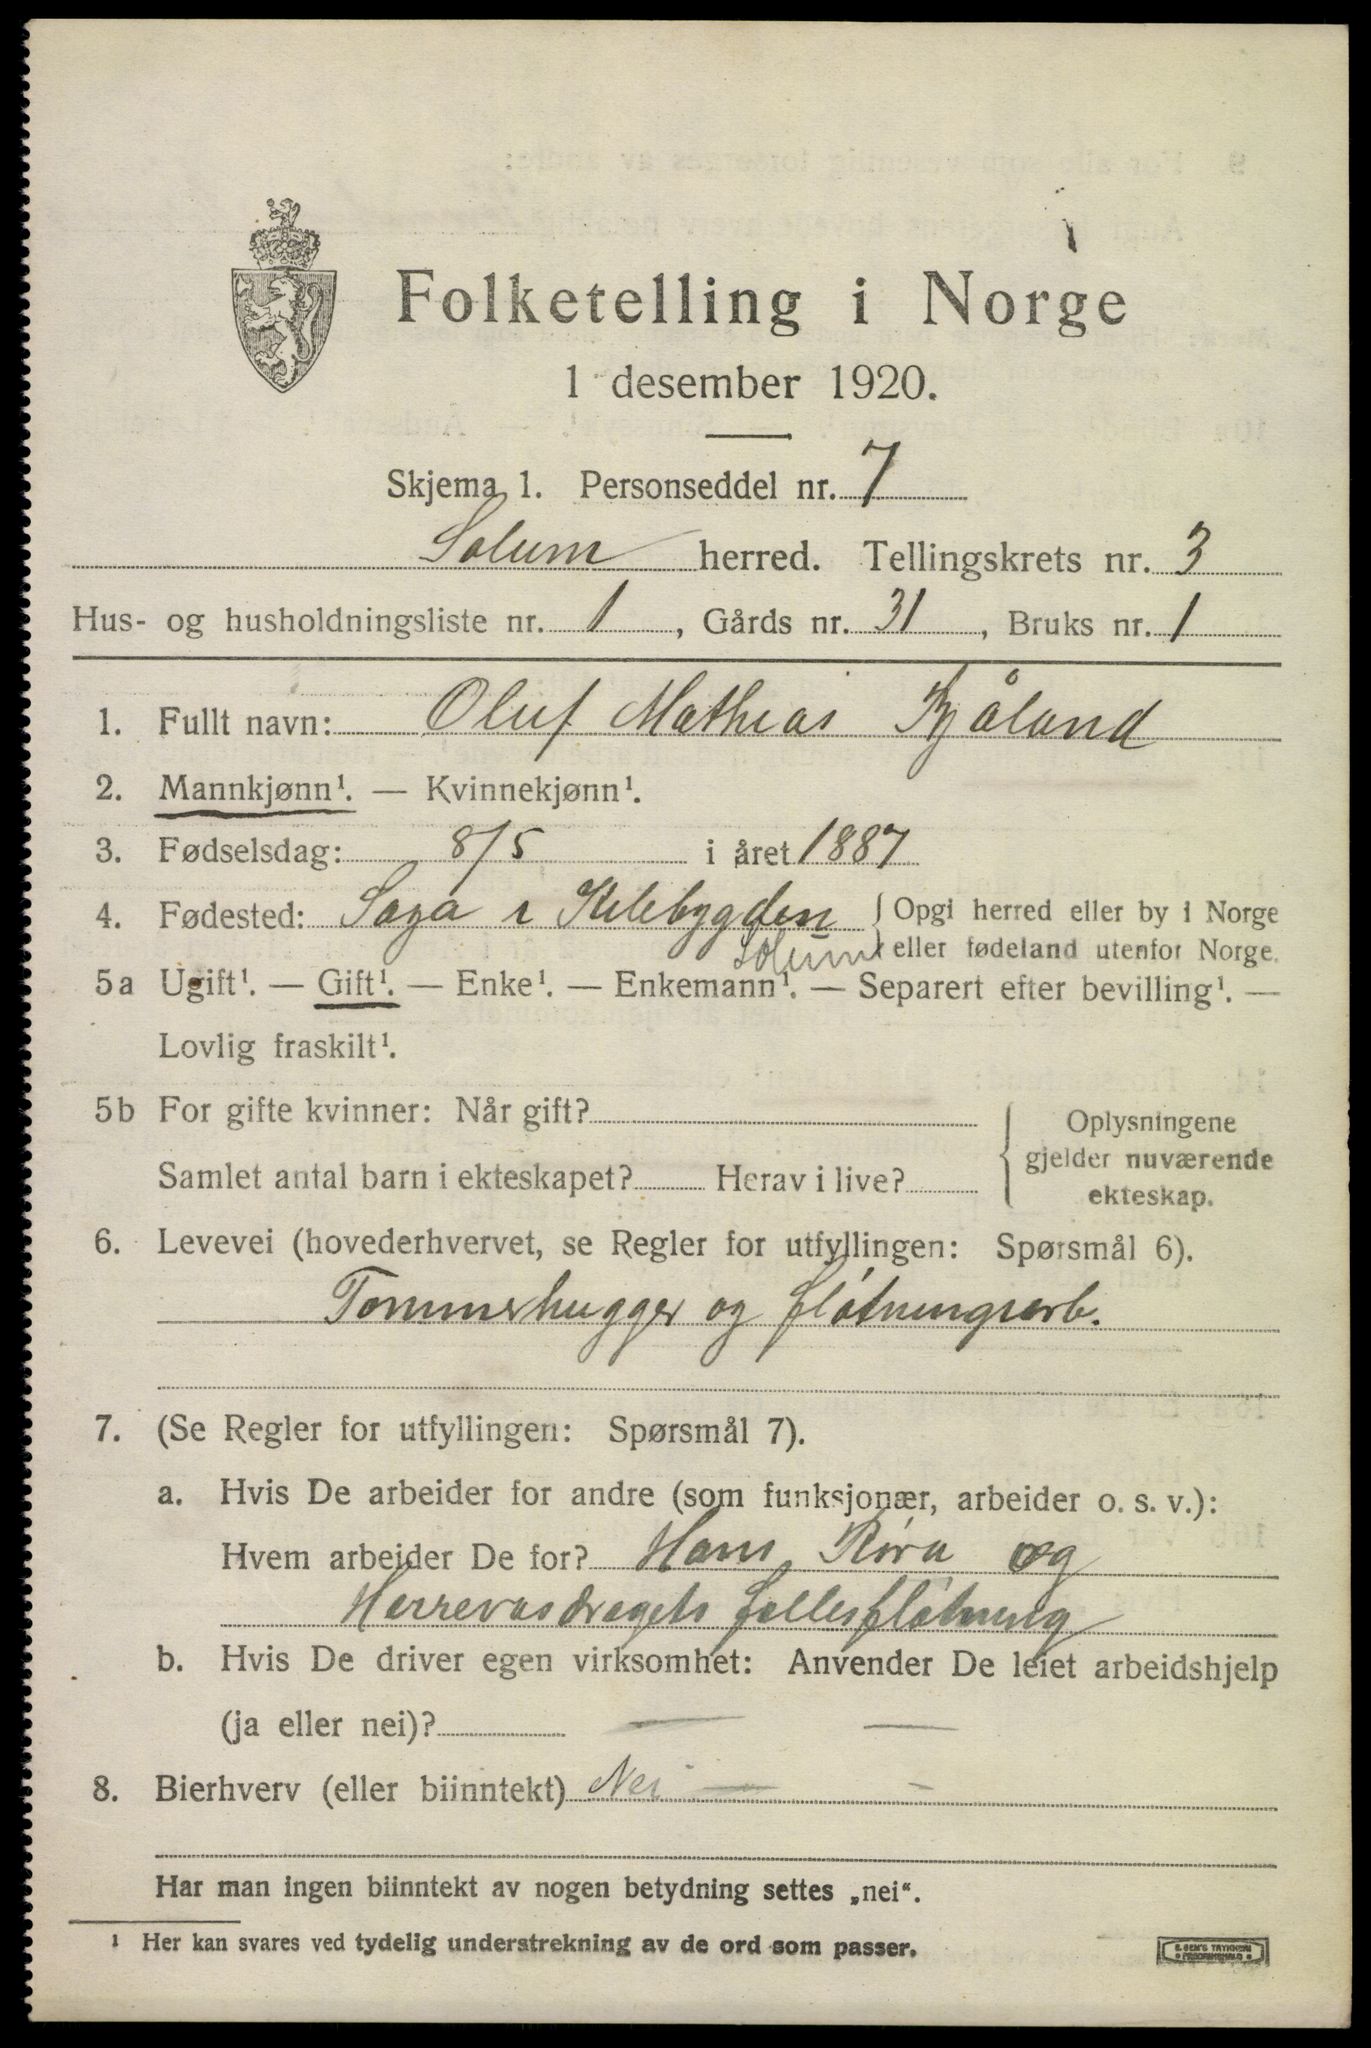 Folketelling i Norge
1 desember 1920.
Skjema 1. Personseddel nr. 7
Solum herred. Tellingskrets nr. 3
Hus- og husholdningsliste nr. 1, Gårds nr. 31, Bruks nr. 1
1. Fullt navn: Oluf Mathias Kjåland
2. Mannkjønn¹. — Kvinnekjønn¹.
3. Fødselsdag: 8/5 i året 1887
4. Fødested: Saga i Kilebygden { Opgi herred eller by i Norge
Solum eller fødeland utenfor Norge.
5a Ugift¹. — Gift¹. — Enke¹. — Enkemann¹. — Separert efter bevilling¹. —
Lovlig fraskilt¹.
5b For gifte kvinner: Når gift?
Samlet antal barn i ekteskapet? Herav i live?
{ Oplysningene
gjelder nuværende
ekteskap.
6. Levevei (hovederhvervet, se Regler for utfyllingen: Spørsmål 6).
Tømmerhugger og fløtningsarb.
7. (Se Regler for utfyllingen: Spørsmål 7).
a. Hvis De arbeider for andre (som funksjonær, arbeider o. s. v.):
Hvem arbeider De for? Hans Røra og
Herrevasdragets fellesfløtning
b. Hvis De driver egen virksomhet: Anvender De leiet arbeidshjelp
(ja eller nei)? — —
8. Bierhverv (eller biinntekt) Nei — –
Har man ingen biinntekt av nogen betydning settes „nei“.
¹ Her kan svares ved tydelig understrekning av de ord som passer.